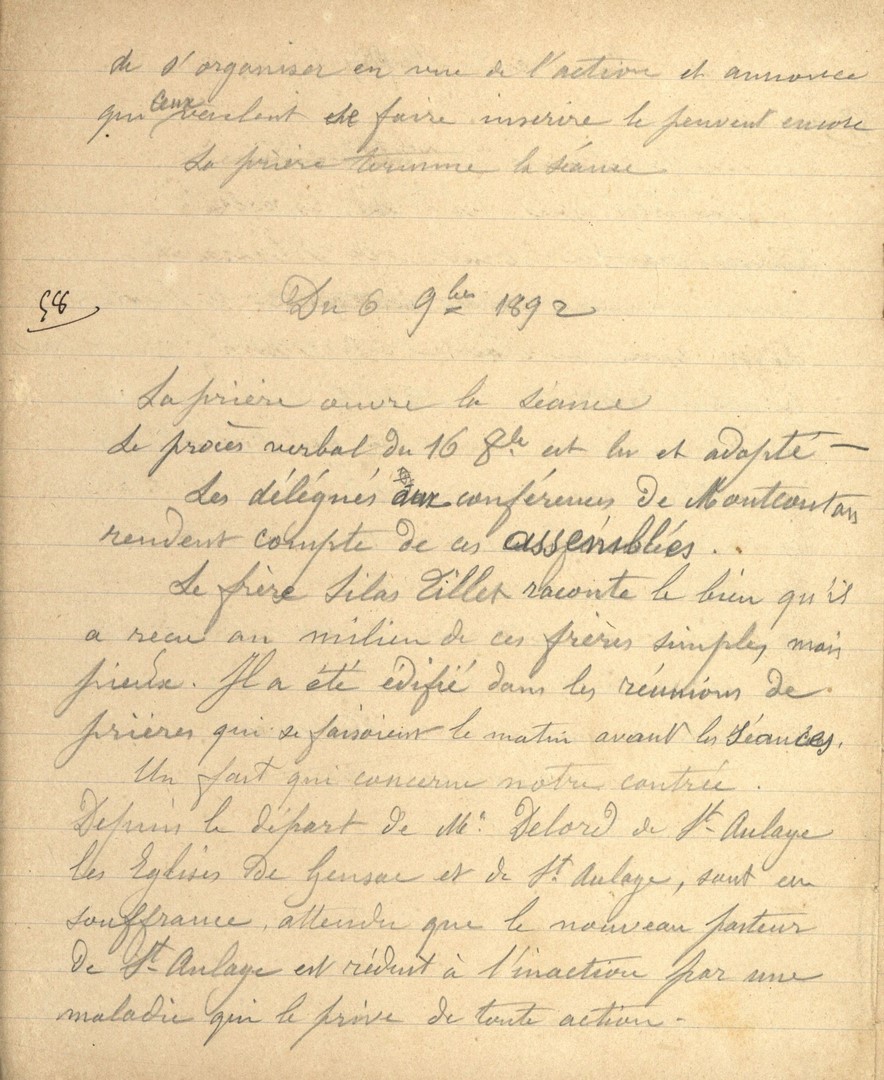 de s'organiser en vue de l'action et annonce
que ceux veulent se faire inscrire le peuvent encore
La prière termine la séance
58
Du 6 9bre 1892
La prière ouvre la séance
Le procès verbal du 16 8bre est lu et adopté —
Les délégués aux conférences de Montcoutan
rendent compte de ces assemblées.
Le frère Silas Tillet raconte le bien qu'il
a recu au milieu de ces frères simples, mais
pieux. Il a été édifié dans les réunions de
prières qui se faisoient le matin avant les séances.
Un fait qui concerne notre contrée.
Depuis le départ de Mr. Delord de St Aulaye
les Eglises de Gensac et de St. Aulaye, sont en
souffrance, attendu que le nouveau pasteur
de St Aulaye est réduit à l'inaction par une
maladie qui le prive de toute action -